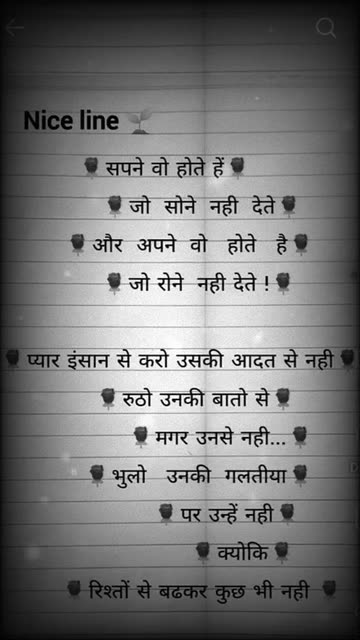 Nice line 🌱
🌹 सपने वो होते हें 🌹
🌹 जो सोने नही देते 🌹
🌹 और अपने वो होते है 🌹
🌹 जो रोने नही देते ! 🌹
🌹 प्यार इंसान से करो उसकी आदत से नही 🌹
🌹 रुठो उनकी बातो से 🌹
🌹 मगर उनसे नही... 🌹
🌹 भुलो उनकी गलतीया 🌹
🌹 पर उन्हें नही 🌹
🌹 क्योकि 🌹
🌹 रिश्तों से बढकर कुछ भी नही 🌹